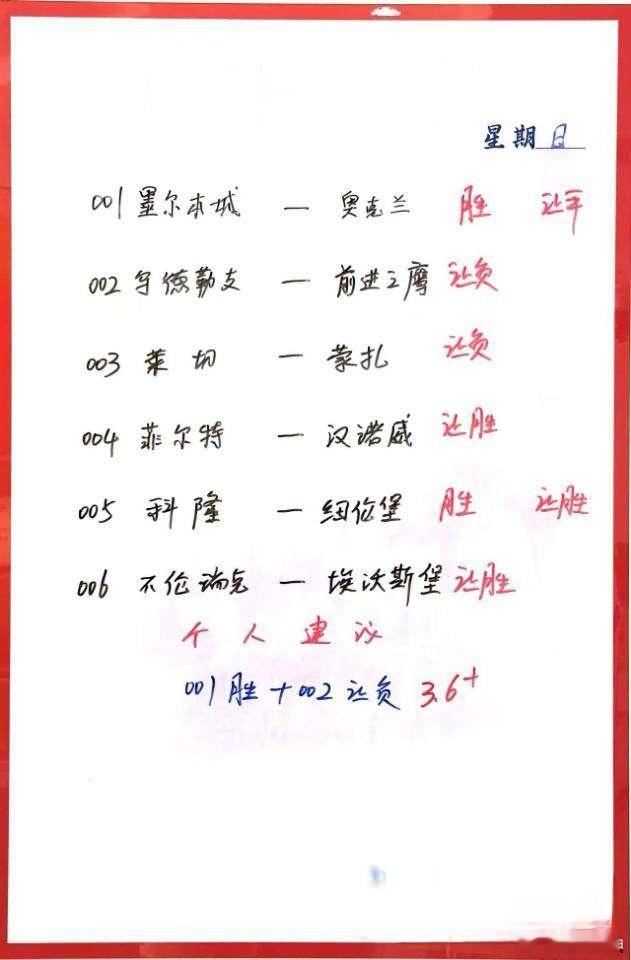 星期日
001 墨尔本城 — 奥克兰 胜 让平
002 多德勒支 — 前进之鹰 让负
003 莱切 — 蒙扎 让负
004 菲尔特 — 汉诺威 让胜
005 科隆 — 纽伦堡 胜 让胜
006 不伦瑞克 — 埃沃斯堡 让胜
个人建议
001胜+002让负 3.6+